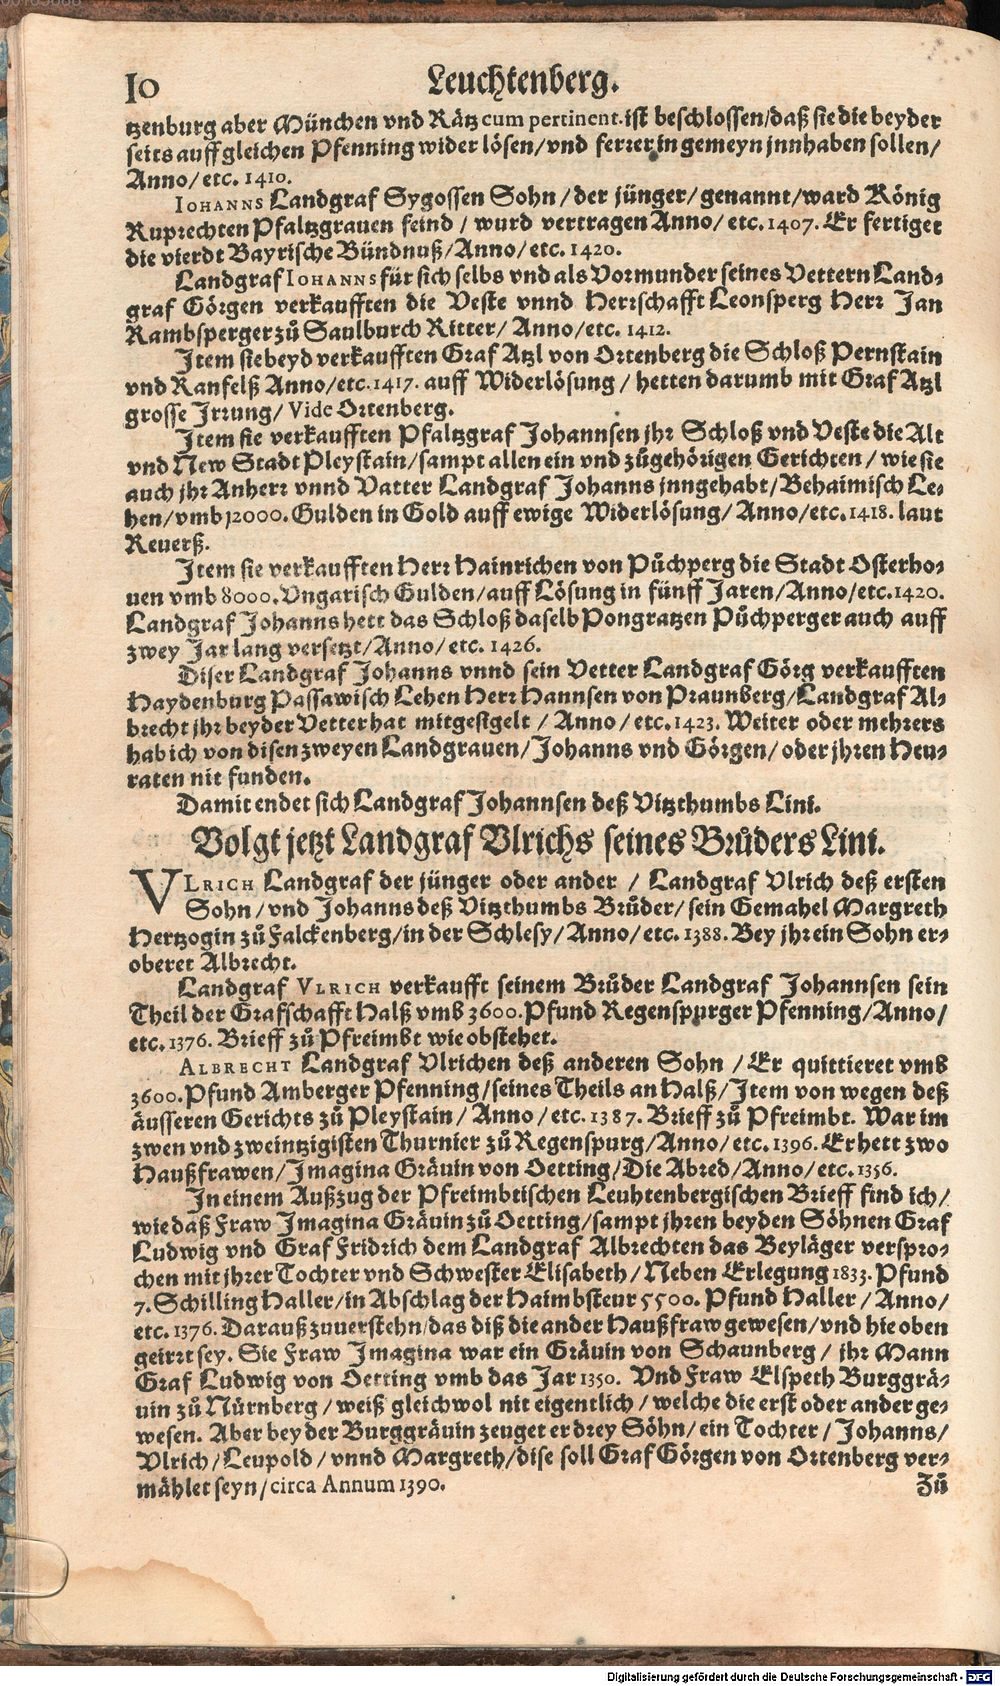 10 Leuchtenberg.
tzenburg aber München vnd Rätz cum pertinent. ist beschlossen/daß sie die beyder
seits auff gleichen Pfenning wider lösen/vnd ferrer in gemeyn jnnhaben sollen/
Anno/etc. 1410.
IOHANNS Landgraf Sygossen Sohn/der jünger/genannt/ward König
Ruprechten Pfaltzgrauen feind / wurd vertragen Anno/etc. 1407. Er fertiget
die vierdt Bayrische Bündnuß/Anno/etc. 1420.
Landgraf IOHANNS für sich selbs vnd als Vormunder seines Vettern Land-
graf Görgen verkaufften die Veste vnnd Herrschafft Leonsperg Herr Jan
Rambsperger zů Saulburch Ritter/ Anno/etc. 1412.
Item sie beyd verkaufften Graf Atzl von Ortenberg die Schloß Pernstain
vnd Ranfelß Anno/etc. 1417. auff Widerlösung / hetten darumb mit Graf Atzl
grosse Irrung/ Vide Ortenberg.
Item sie verkaufften Pfaltzgraf Johannsen jhr Schloß vnd Veste die Alt
vnd New Stadt Pleystain/sampt allen ein vnd zůgehörigen Gerichten / wie sie
auch jhr Anherr vnnd Vatter Landgraf Johanns jnngehabt/Behaimisch Le-
hen/vmb 12000. Gulden in Gold auff ewige Widerlösung/ Anno/etc. 1418. laut
Reuerß.
Item sie verkaufften Herr Hainrichen von Půchperg die Stadt Osterho-
uen vmb 8000. Vngarisch Gulden/auff Lösung in fünff Jaren/Anno/etc. 1420.
Landgraf Johanns hett das Schloß daselb Pongratzen Půchperger auch auff
zwey Jar lang versetzt/Anno/etc. 1426.
Diser Landgraf Johanns vnnd sein Vetter Landgraf Görg verkaufften
Haydenburg Passawisch Lehen Herr Hannsen von Praunberg/Landgraf Al-
brecht jhr beyder Vetter hat mitgesigelt / Anno/etc. 1423. Weiter oder mehrers
hab ich von disen zweyen Landgrauen/Johanns vnd Görgen/oder jhren Heu-
raten nit funden.
Damit endet sich Landgraf Johannsen deß Vitzthumbs Lini.
Volgt jetzt Landgraf Vlrichs seines Brůders Lini.
VLRICH Landgraf der jünger oder ander / Landgraf Vlrich deß ersten
Sohn/vnd Johanns deß Vitzthumbs Brůder/sein Gemahel Margreth
Hertzogin zů Falckenberg/in der Schlesy/Anno/etc. 1388. Bey jhr ein Sohn er-
oberet Albrecht.
Landgraf VLRICH verkaufft seinem Brůder Landgraf Johannsen sein
Theil der Grafschafft Halß vmb 3600. Pfund Regenspurger Pfenning/Anno/
etc. 1376. Brieff zů Pfreimbt wie obstehet.
ALBRECHT Landgraf Vlrichen deß anderen Sohn / Er quittieret vmb
3600. Pfund Amberger Pfenning/seines Theils an Halß/Item von wegen deß
äusseren Gerichts zů Pleystain/ Anno/etc. 1387. Brieff zů Pfreimbt. War im
zwen vnd zweintzigisten Thurnier zů Regenspurg/Anno/etc. 1396. Er hett zwo
Haußfrawen/Imagina Gräuin von Oetting/Die Abred/Anno/etc. 1356.
In einem Außzug der Pfreimbtischen Leuhtenbergischen Brieff find ich/
wie daß Fraw Imagina Gräuin zů Oetting/sampt jhren beyden Söhnen Graf
Ludwig vnd Graf Fridrich dem Landgraf Albrechten das Beyläger verspro-
chen mit jhrer Tochter vnd Schwester Elisabeth/Neben Erlegung 1833. Pfund
7. Schilling Haller/in Abschlag der Haimbsteur 5500. Pfund Haller / Anno/
etc. 1376. Darauß zuuerstehn/das diß die ander Haußfraw gewesen/vnd hie oben
geirrt sey. Sie Fraw Imagina war ein Gräuin von Schaunberg / jhr Mann
Graf Ludwig von Oetting vmb das Jar 1350. Vnd Fraw Elspeth Burggrä-
uin zů Nürnberg/weiß gleichwol nit eigentlich/welche die erst oder ander ge-
wesen. Aber bey der Burggräuin zeuget er drey Söhn/ein Tochter/Johanns/
Vlrich/Leupold/vnnd Margreth/dise soll Graf Görgen von Ortenberg ver-
mählet seyn/circa Annum 1390.
Zů
Digitalisierung gefördert durch die Deutsche Forschungsgemeinschaft - DFG